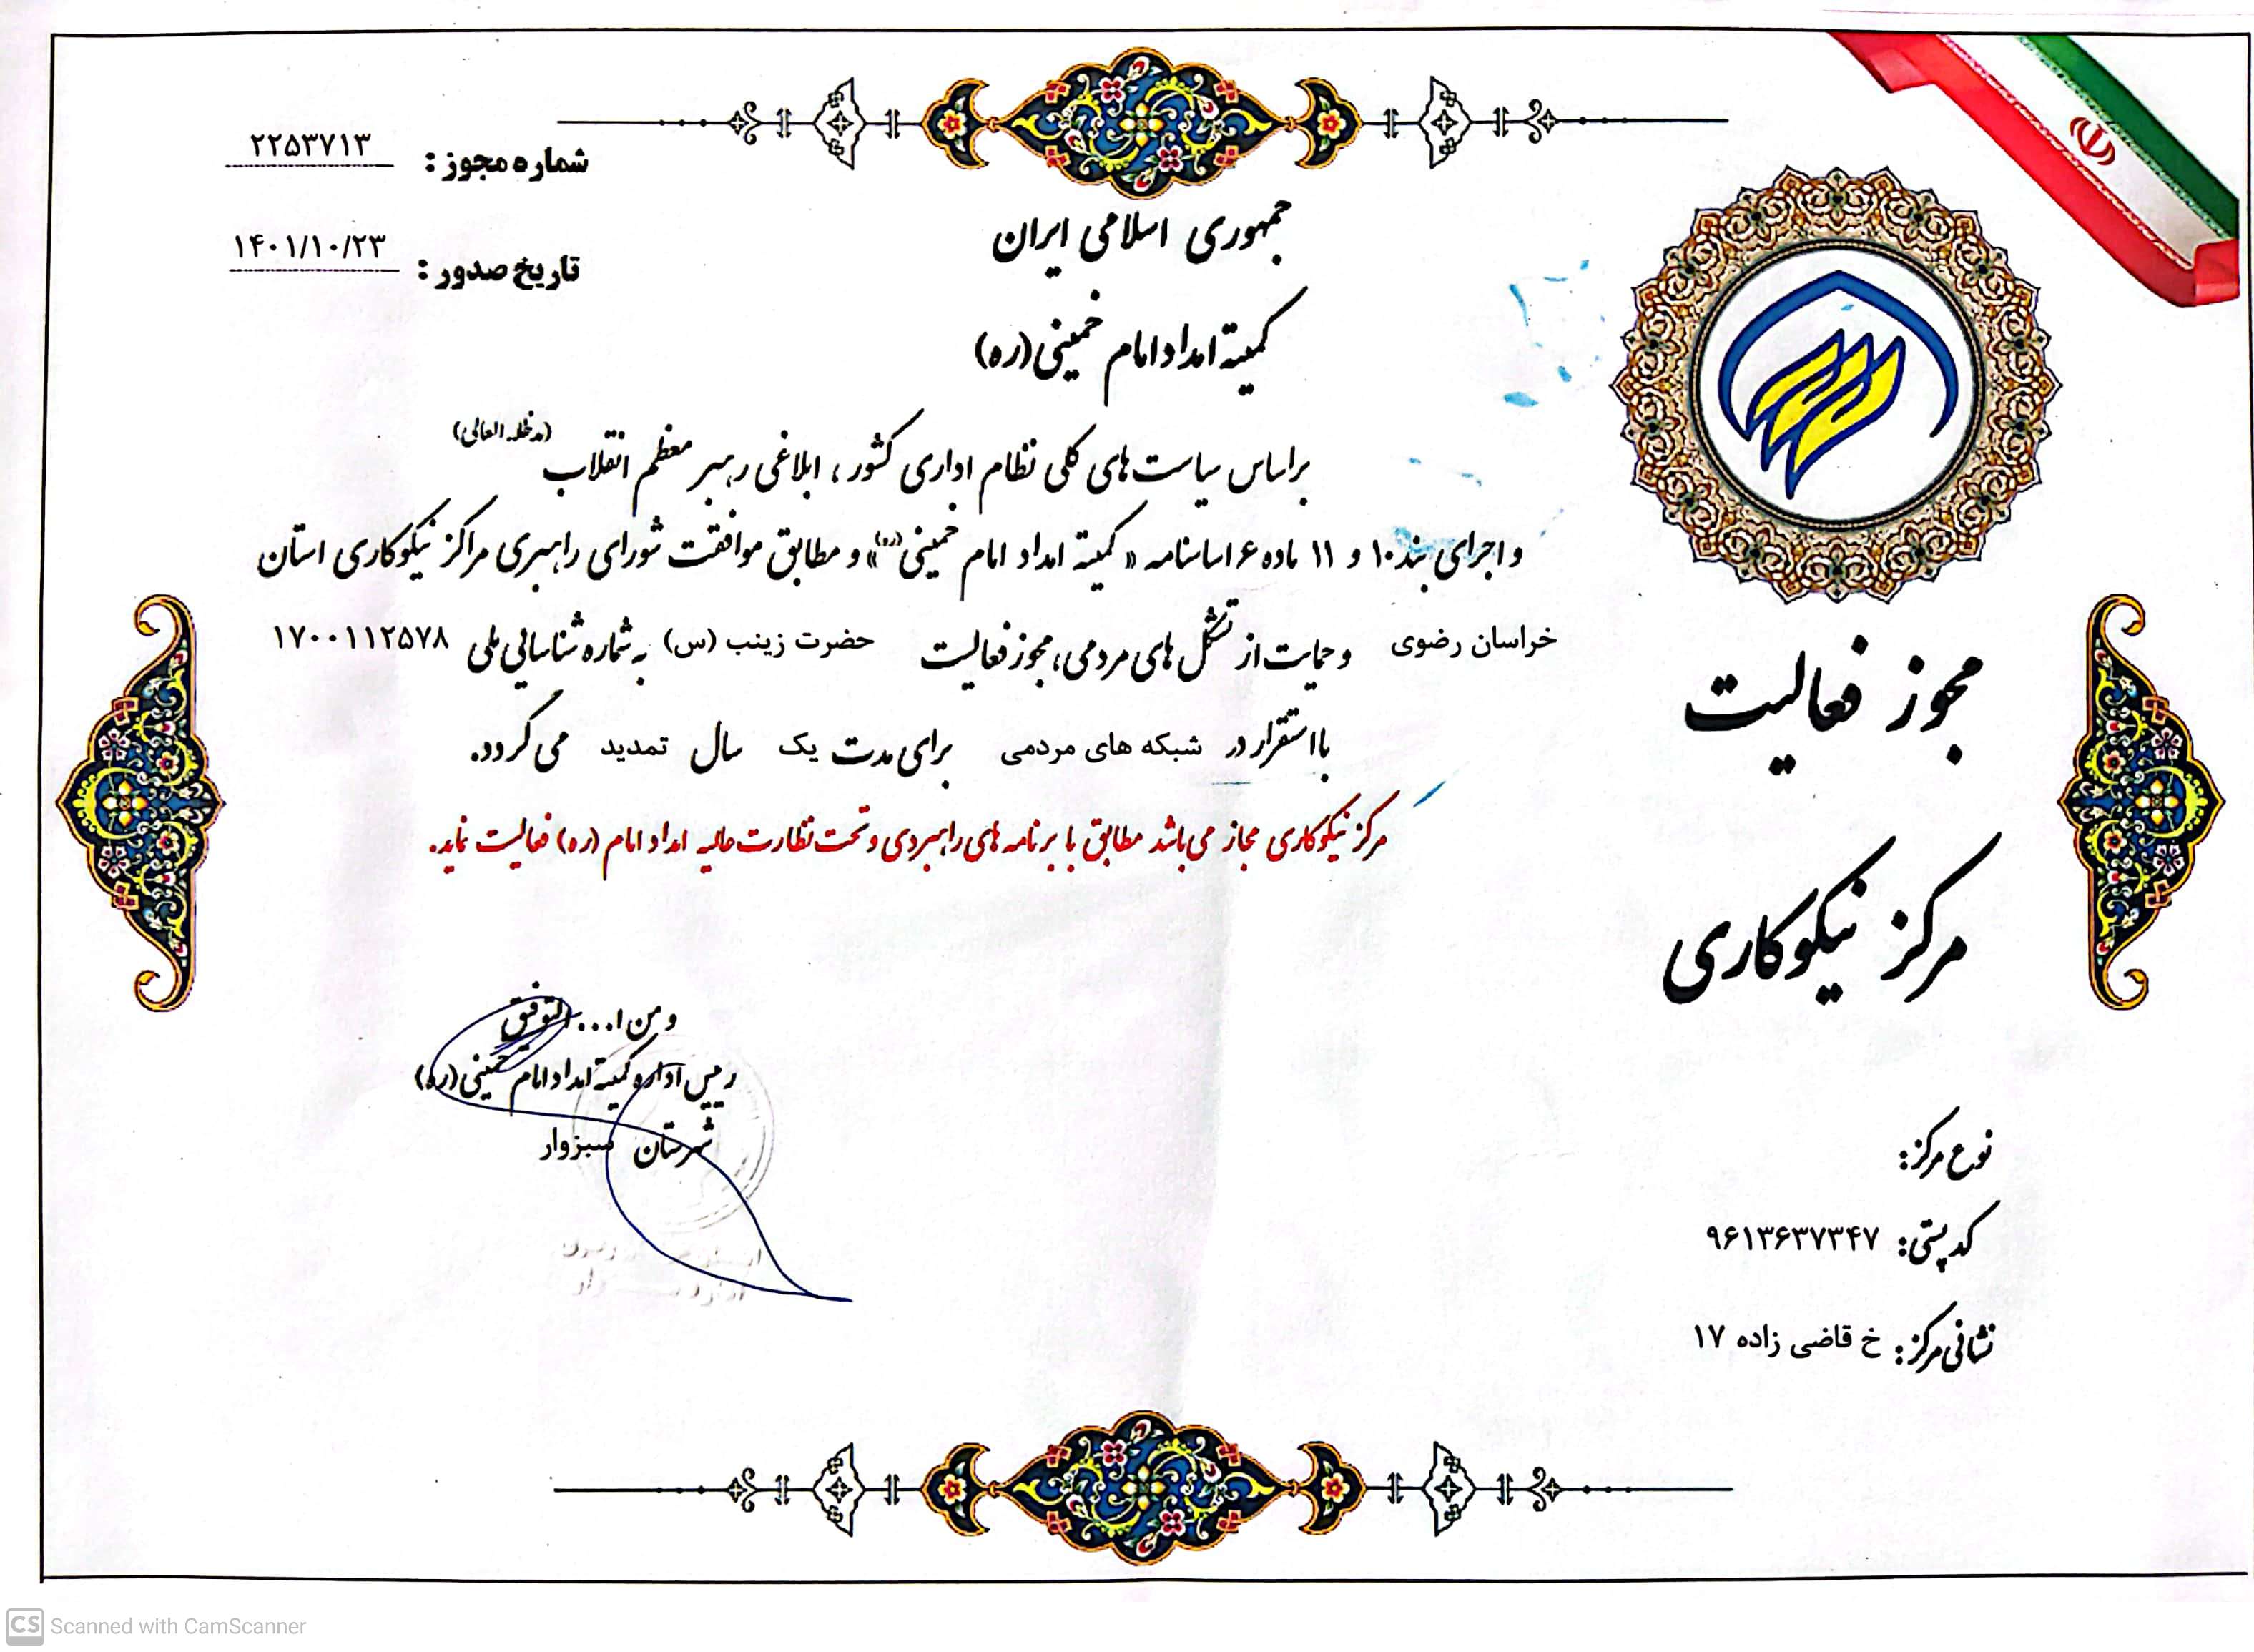 شماره مجوز : ۲۲۵۳۷۱۳
تاریخ صدور : ۱۴۰۱/۱۰/۲۳
جمهوری اسلامی ایران
کمیته امداد امام خمینی (ره)
براساس سیاست های کلی نظام اداری کشور ، ابلاغی رهبر معظم انقلاب (مدظله العالی)
و اجرای بند ۱۰ و ۱۱ ماده ۶ اساسنامه « کمیته امداد امام خمینی (ره)» و مطابق موافقت شورای راهبری مراکز نیکوکاری استان
خراسان رضوی و حمایت از تشکل های مردمی، مجوز فعالیت حضرت زینب (س) به شماره شناسایی ملی ۱۷۰۰۱۱۲۵۷۸
با استقرار در شبکه های مردمی برای مدت یک سال تمدید می گردد.
مرکز نیکوکاری مجاز می باشد مطابق با برنامه های راهبردی و تحت نظارت عالیه امداد امام (ره) فعالیت نماید.
مجوز فعالیت
مرکز نیکوکاری
و من ا... التوفیق
رییس اداره کمیته امداد امام خمینی (ره)
شهرستان سبزوار
نوع مرکز:
کد پستی: ۹۶۱۳۶۳۷۳۴۷
نشانی مرکز: خ قاضی زاده ۱۷
CS Scanned with CamScanner